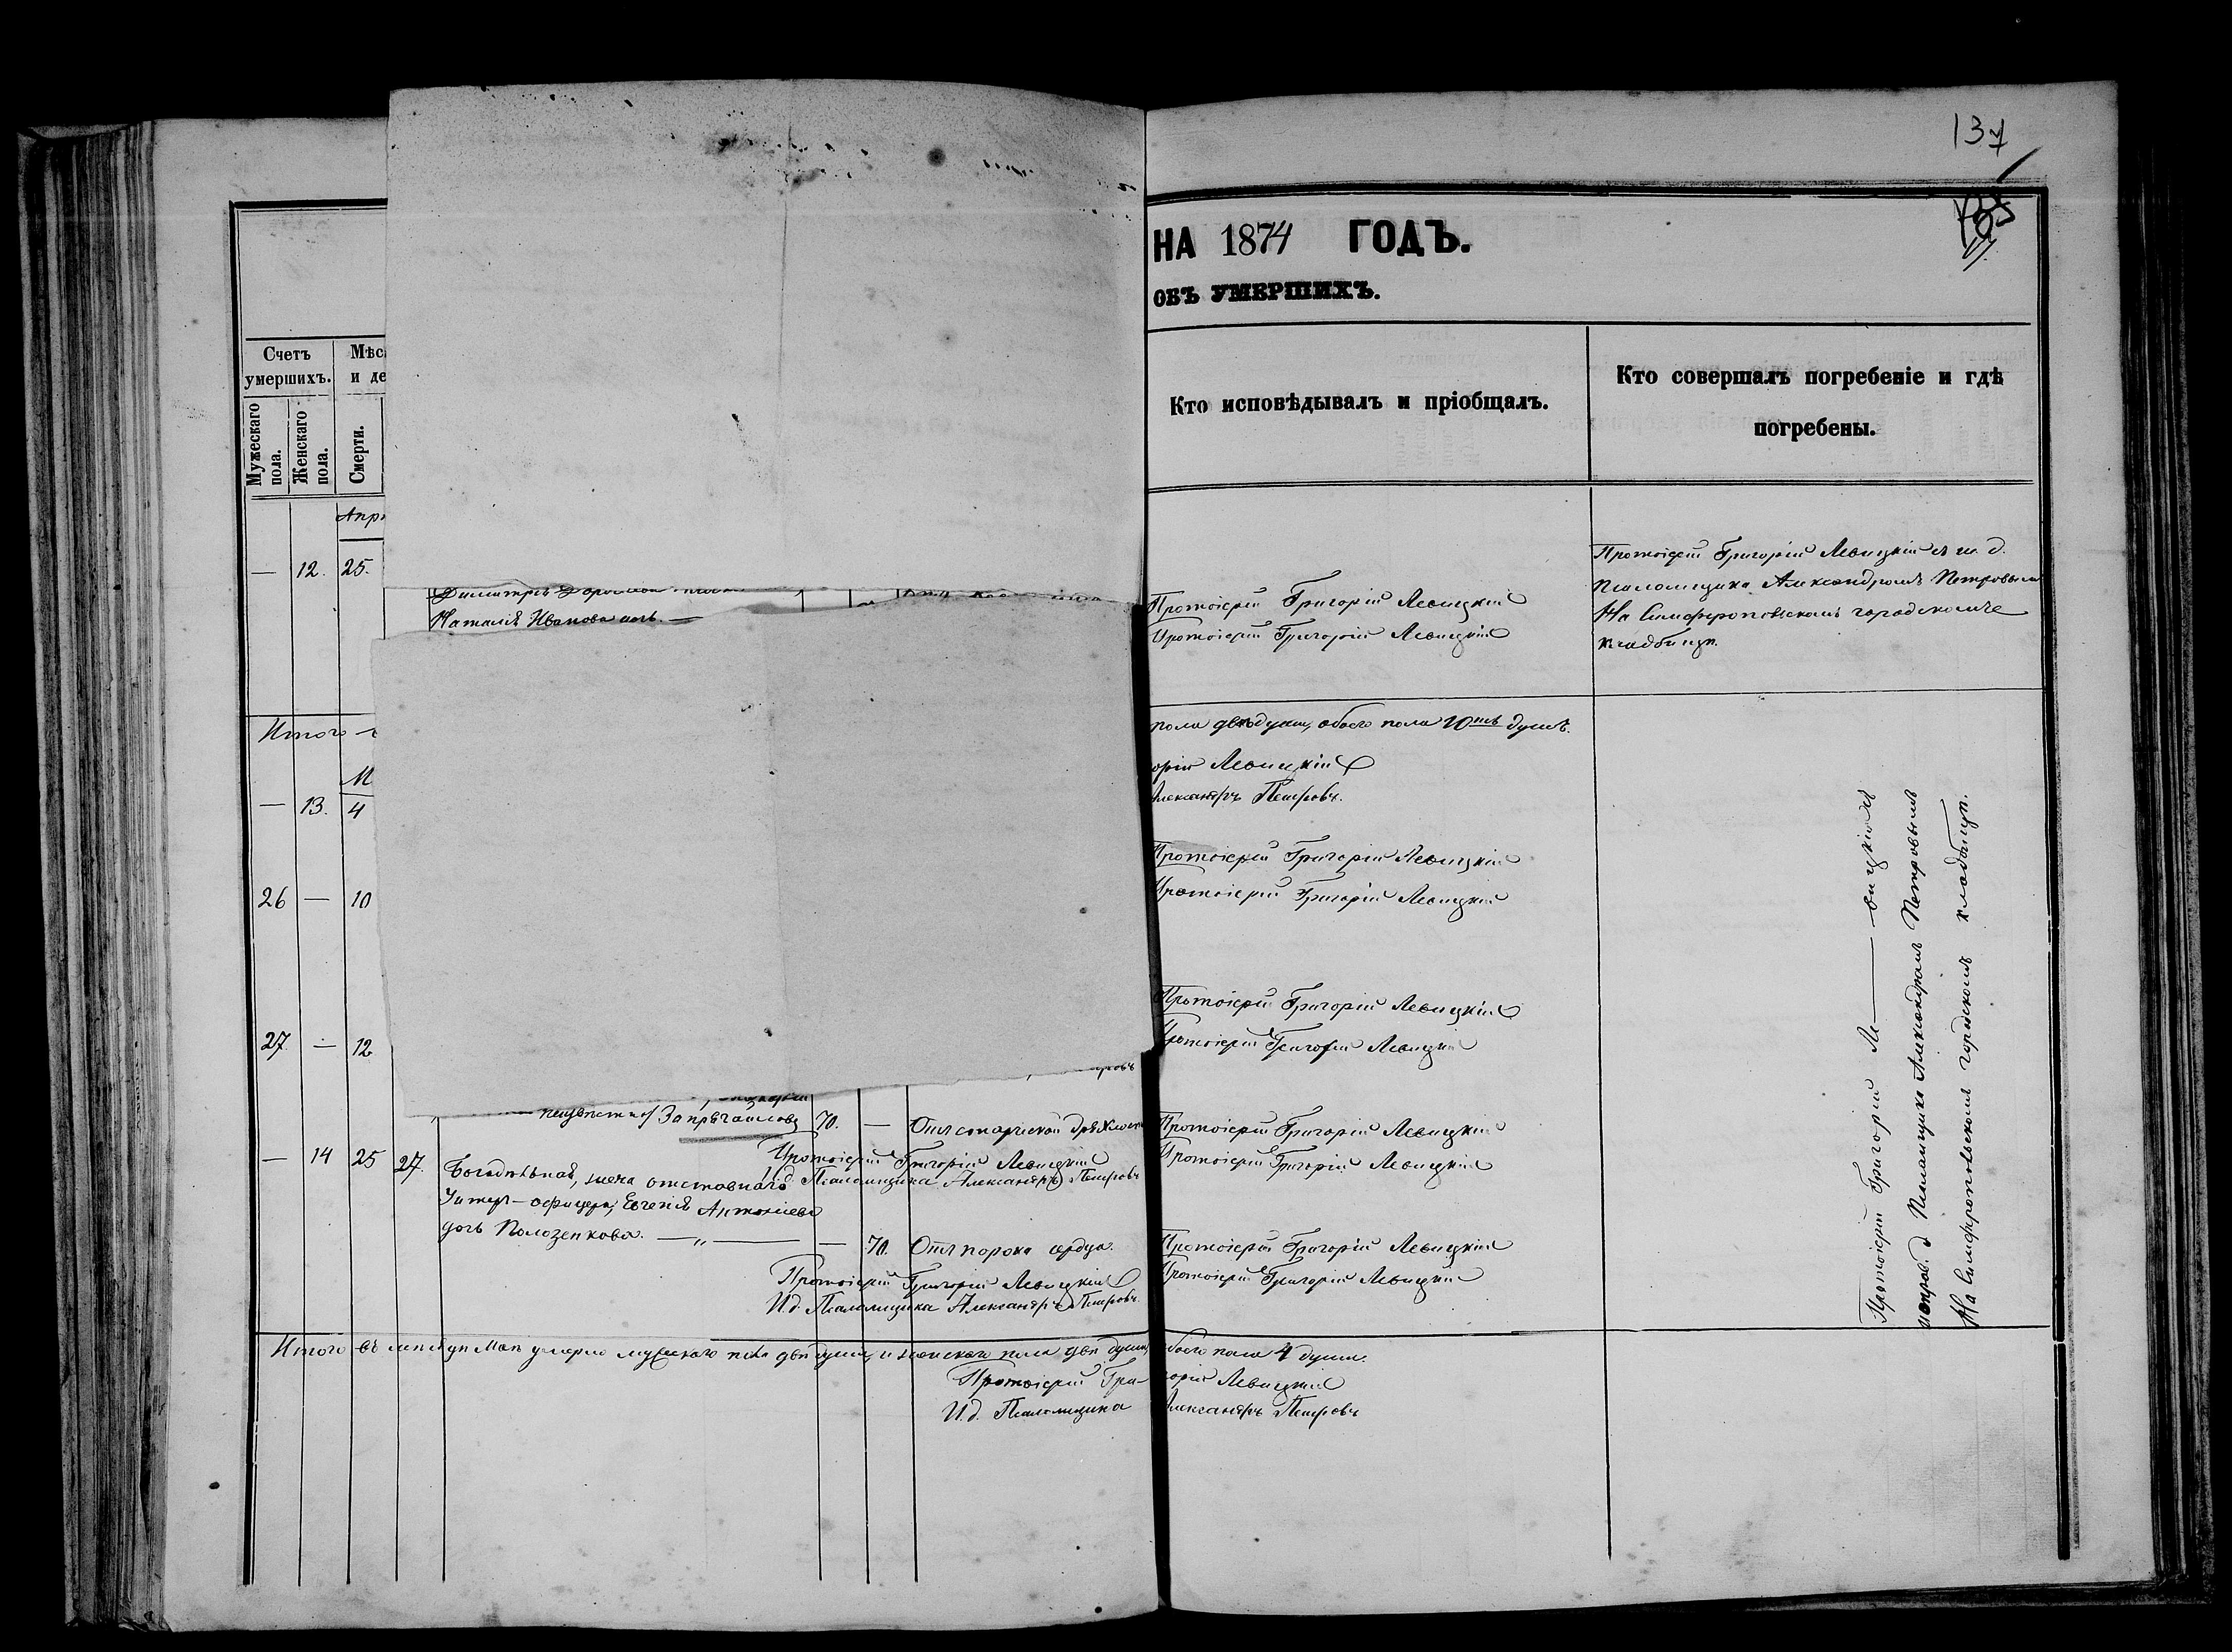 137
НА 1874 ГОДЪ.
ОБЪ УМЕРШИХЪ.
Счетъ умершихъ.
Мужескаго пола.
Женскаго пола.
Мѣс
и де
Смерти.
Кто исповѣдывалъ и пріобщалъ.
Кто совершалъ погребеніе и гдѣ
погребены.
Апр
— 12. 25.
Наталія Иванова
Протоіерей Григорій Левицкій
Протоіерей Григорій Левицкій
Протоіерей Григорій Левицкій
Псаломщика Александромъ Петровымъ
На Симферопольскомъ городскомъ
кладбищѣ.
Итого
пола двѣ души, обоего пола 10ть душъ.
орій Левицкій
Александръ Петровъ.
М
— 13. 4
Протоіерей Григорій Левицкій
Протоіерей Григорій Левицкій
26 — 10
Протоіерей Григорій Левицкій
Протоіерей Григорій Левицкій
27 — 12
70. — Отъ старческой
Протоіерей Григорій Левицкій
Протоіерей Григорій Левицкій
Протоіерей Григорій Левицкій
И.д. Псаломщика Александръ Петровъ
— 14 25 27. Богадѣльная, жена отставнаго
Унтеръ-офицера, Евгенія Антоніева
дочь Полозенкова. — „ — — 70. Отъ порока сердца.
Протоіерей Григорій Левицкій
И.д. Псаломщика Александръ Петровъ.
Протоіерей Григорій Левицкій
Протоіерей Григорій Левицкій
Протоіерей Григорій Ле — вицкій
исправ. д Псаломщика Александромъ Петровымъ
На Симферопольскомъ городскомъ кладбищѣ.
Итого въ мѣсяцѣ Маѣ умерло мужескаго пола двѣ души, и женскаго пола двѣ души, обоего пола 4 души.
Протоіерей Гри-горій Левицкій
И.д. Псаломщика Александръ Петровъ